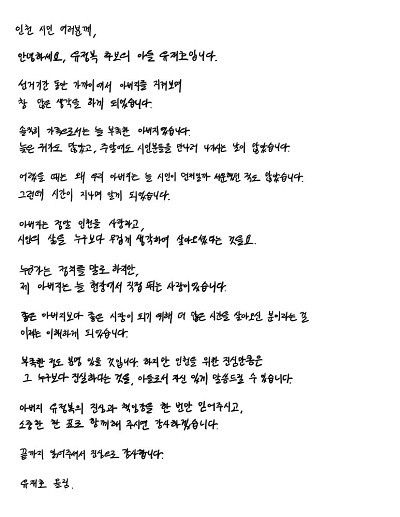 인천 시민 여러분께,
안녕하세요, 유정복 후보의 아들 유제호입니다.
선거기간 동안 가까이에서 아버지를 지켜보며
참 많은 생각을 하게 되었습니다.
솔직히 가족으로서는 늘 부족한 아버지였습니다.
늦은 귀가도 많았고, 주말에도 시민분들을 만나러 나가시는 날이 많았습니다.
어렸을 때는 왜 우리 아버지는 늘 시민이 먼저일까 서운했던 적도 많았습니다.
그런데 시간이 지나며 알게 되었습니다.
아버지는 정말 인천을 사랑하고,
시민의 삶을 누구보다 무겁게 생각하며 살아오셨다는 것을요.
누군가는 정치를 말로 하지만,
제 아버지는 늘 현장에서 직접 뛰는 사람이었습니다.
좋은 아버지보다 좋은 시장이 되기 위해 더 많은 시간을 살아오신 분이라는 걸
이제는 이해하게 되었습니다.
부족한 점도 분명 있을 것입니다. 하지만 인천을 위한 진심만큼은
그 누구보다 진실하다는 것을, 아들로서 자신 있게 말씀드릴 수 있습니다.
아버지 유정복의 진심과 책임감을 한 번만 믿어주시고,
소중한 한 표로 함께해 주시면 감사하겠습니다.
끝까지 읽어주셔서 진심으로 감사합니다.
유제호 올림.